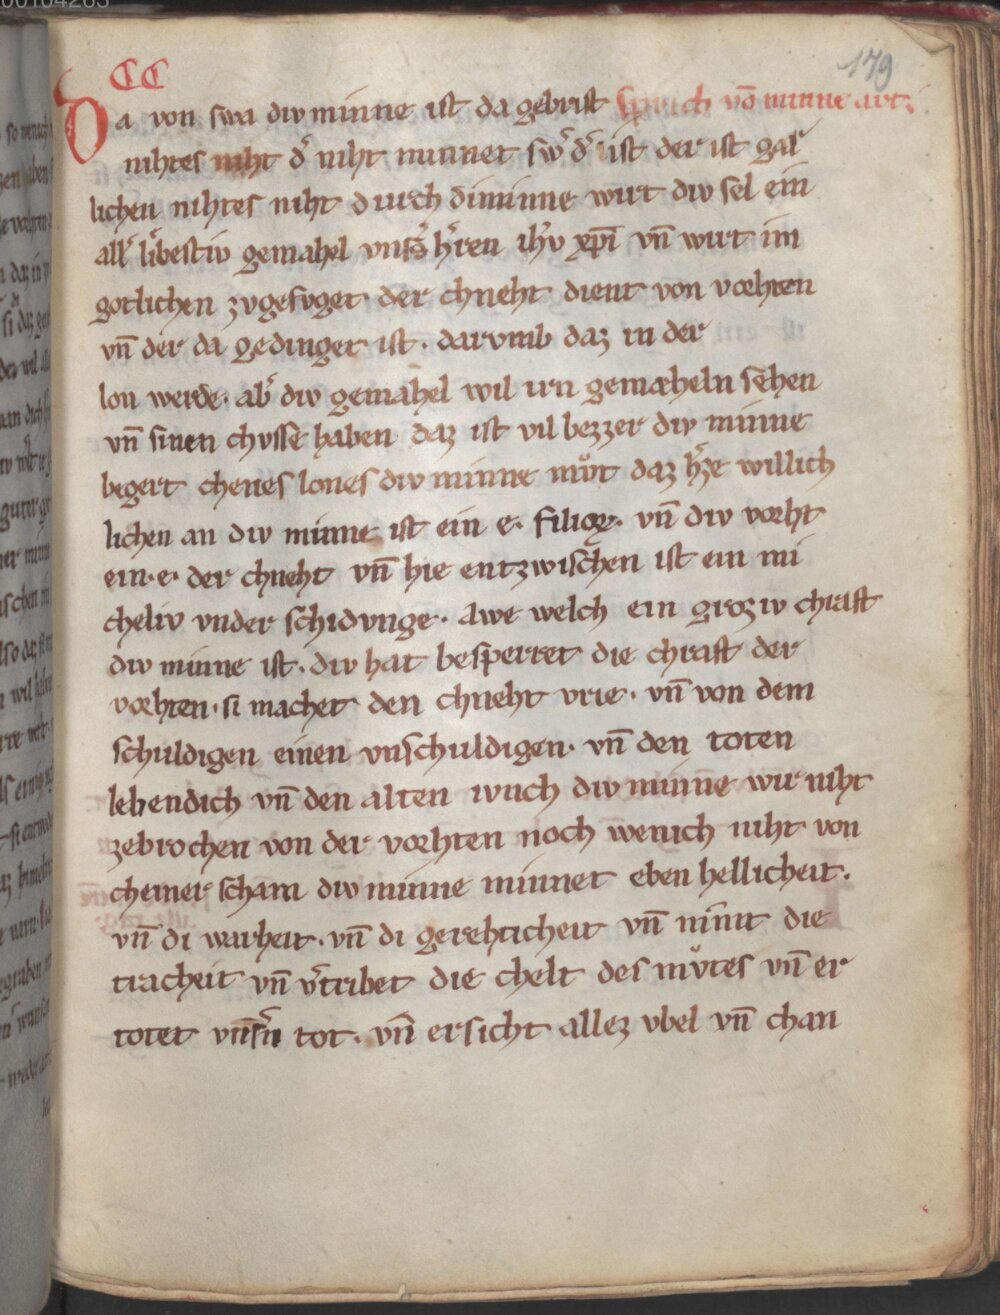 179
CC
Da von swa div minne ist da gebrist spruch võ minne
nihtes niht d͛ niht minnet sw͛ d͛ ist der ist gał
lichen nihtes niht durch diminne wirt div sel ein
all͛ libestiv gemahel vns͛s h͛ren ihv̄ xp̄i vn̄ wirt im
gotlichen zvgefvget· der chneht dient von vorhten
vn̄ der da gedinget ist· darvmb daz in der
lon werde· ab͛ div gemahel wil irn gemæheln sehen
vn̄ sinen chvsse haben daz ist vil bezzer div minne
begert cheines lones div minne mvͦt daz h͛ze willich
lichen an div minne ist ein e· filioꝝ· vn̄ div vorht
ein·e· der chneht vn̄ hie entzwischen ist ein mi
cheliv vnder schidvnge· Awe welch ein groziv chraft
div minne ist· div hat besperret die chraft der
vorhten· si machet den chneht vrie· vn̄ von dem
schuldigen einen vnschuldigen· vn̄ den toten
lebendich vn̄ den alten ivnch div minne wir niht
zebrochen von der vorhten noch wenich niht von
cheiner scham div minne minnet eben hellicheit·
vn̄ di warheit· vn̄ di gerehticheit vn̄ nim̄t die
tracheit vn̄ v͛tribet die chelt des mvͦtes vn̄ er
totet vns͛n tot· vn̄ ersicht allez vbel vn̄ chan